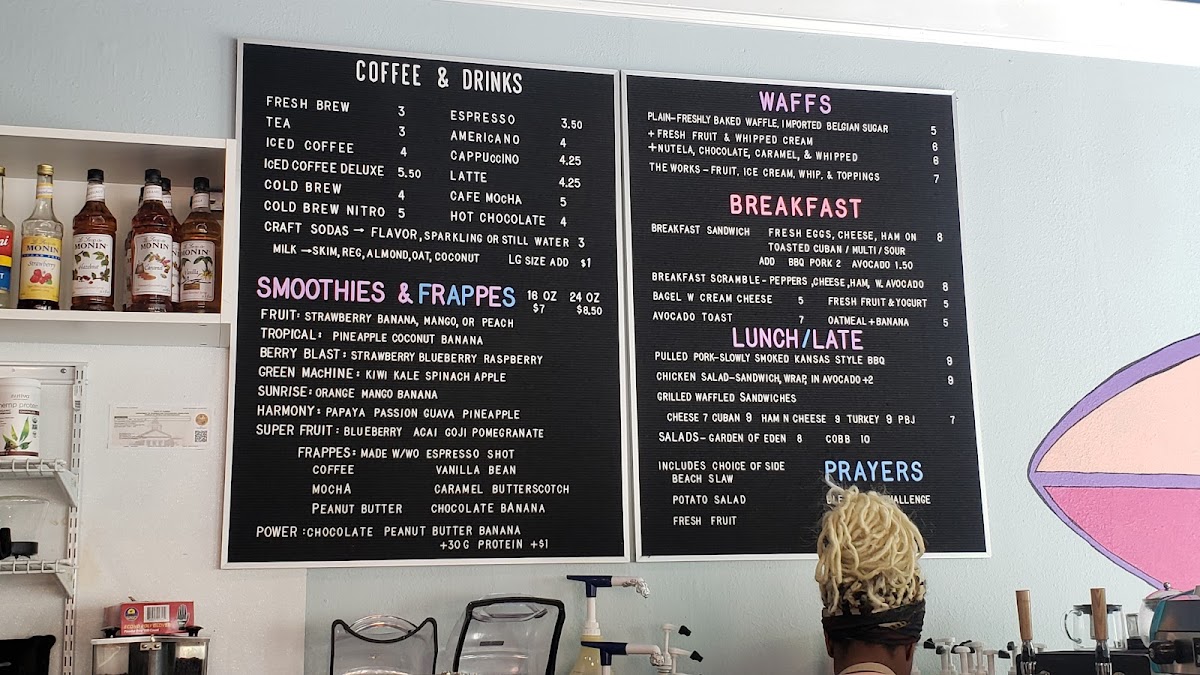 COFFEE & DRINKS
FRESH BREW 3
TEA 3
ICED COFFEE 4
ICED COFFEE DELUXE 5.50
COLD BREW 4
COLD BREW NITRO 5
ESPRESSO 3.50
AMERICANO 4
CAPPUCCINO 4.25
LATTE 4.25
CAFE MOCHA 5
HOT CHOCOLATE 4
CRAFT SODAS → FLAVOR, SPARKLING OR STILL WATER 3
MILK → SKIM, REG, ALMOND, OAT, COCONUT LG SIZE ADD $1
SMOOTHIES & FRAPPES 16 OZ 24 OZ
$7 $8.50
FRUIT: STRAWBERRY BANANA, MANGO, OR PEACH
TROPICAL: PINEAPPLE COCONUT BANANA
BERRY BLAST: STRAWBERRY BLUEBERRY RASPBERRY
GREEN MACHINE: KIWI KALE SPINACH APPLE
SUNRISE: ORANGE MANGO BANANA
HARMONY: PAPAYA PASSION GUAVA PINEAPPLE
SUPER FRUIT: BLUEBERRY ACAI GOJI POMEGRANATE
FRAPPES: MADE W/WO ESPRESSO SHOT
COFFEE VANILLA BEAN
MOCHA CARAMEL BUTTERSCOTCH
PEANUT BUTTER CHOCOLATE BANANA
POWER: CHOCOLATE PEANUT BUTTER BANANA
+30G PROTEIN +$1
WAFFS
PLAIN-FRESHLY BAKED WAFFLE, IMPORTED BELGIAN SUGAR 5
+FRESH FRUIT & WHIPPED CREAM 6
+NUTELA, CHOCOLATE, CARAMEL, & WHIPPED 6
THE WORKS - FRUIT, ICE CREAM, WHIP, & TOPPINGS 7
BREAKFAST
BREAKFAST SANDWICH FRESH EGGS, CHEESE, HAM ON 8
TOASTED CUBAN / MULTI / SOUR
ADD BBQ PORK 2 AVOCADO 1.50
BREAKFAST SCRAMBLE - PEPPERS, CHEESE, HAM, W. AVOCADO 8
BAGEL W CREAM CHEESE 5 FRESH FRUIT & YOGURT 5
AVOCADO TOAST 7 OATMEAL + BANANA 5
LUNCH/LATE
PULLED PORK-SLOWLY SMOKED KANSAS STYLE BBQ 9
CHICKEN SALAD-SANDWICH, WRAP, IN AVOCADO +2 9
GRILLED WAFFLED SANDWICHES
CHEESE 7 CUBAN 9 HAM N CHEESE 9 TURKEY 9 PBJ 7
SALADS - GARDEN OF EDEN 8 COBB 10
INCLUDES CHOICE OF SIDE
BEACH SLAW
POTATO SALAD
FRESH FRUIT
PRAYERS
MONIN
strawberry
MONIN
MONIN
Caramel
MONIN
hemp protein